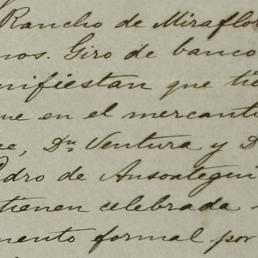 Rancho de Miraflor
nos. Giro de banco
nifiestan que tie
que en el mercanti
ee, Dn Ventura y D
Pedro de Ansoategui
tienen celebrada
mento formal por